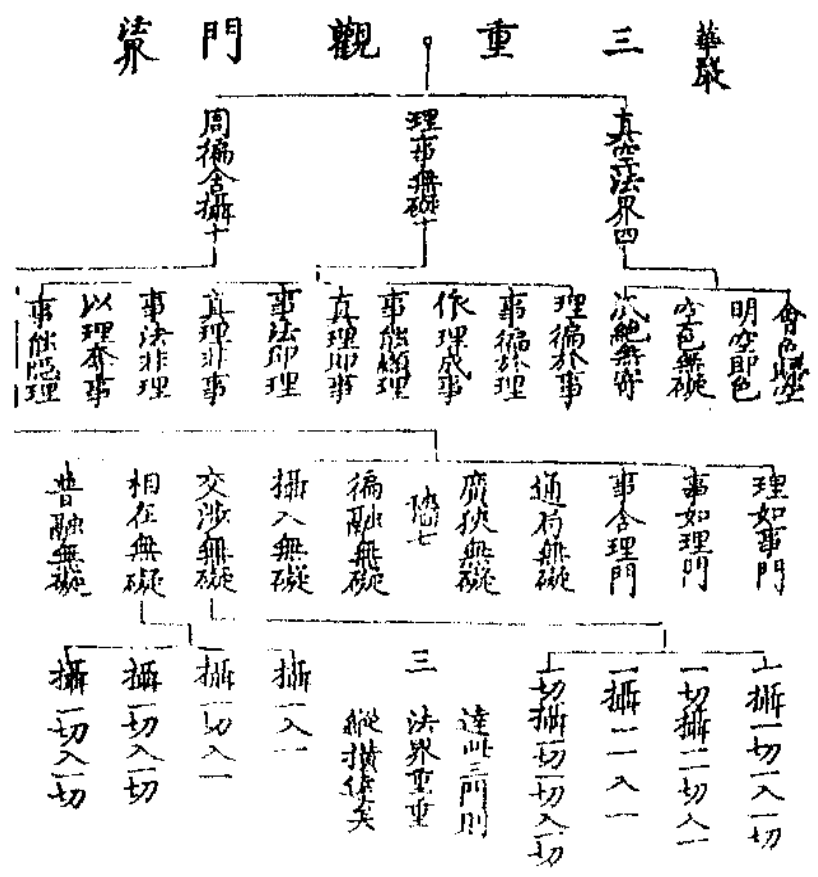 華嚴三重觀門法界
真空法界四
理事無礙十
周徧含攝十
會色歸空
明空即色
空色無礙
泯絕無寄
理徧於事
事徧於理
依理成事
事能顯理
真理即事
事法即理
真理非事
事法非理
以理奪事
事能隱理
理如事門
事如理門
事含理門
通局無礙
廣狹無礙
七
徧融無礙
攝入無礙
交涉無礙
相在無礙
普融無礙
一攝一切一入一切
一切攝一一切入一
一攝一一入一
一切攝一切一切入一切
達此三門則
三法界重重
縱橫
矣
攝一入一
攝一切入一
攝一切入一切
攝一切入一切